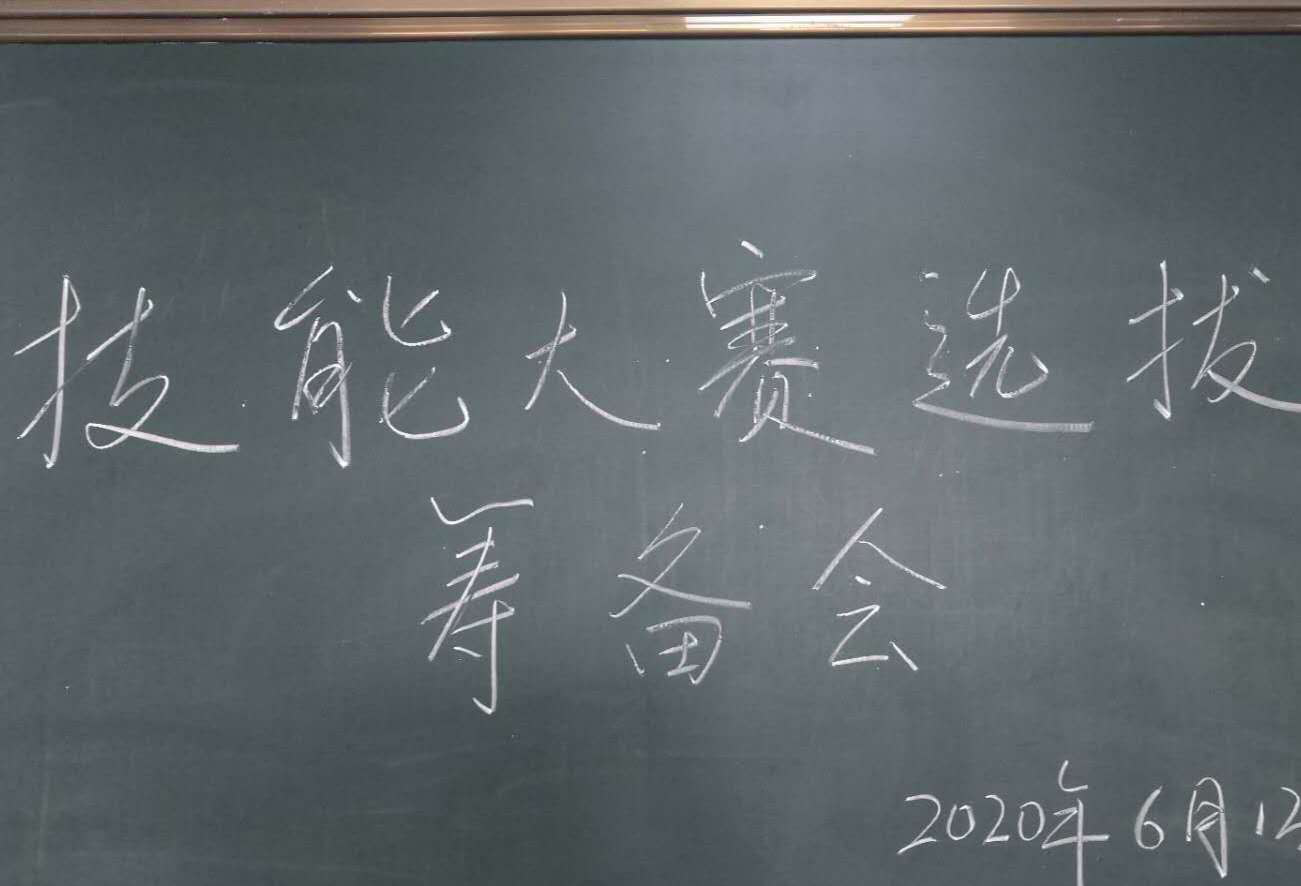 技能大赛选拔
筹备会
2020年6月12